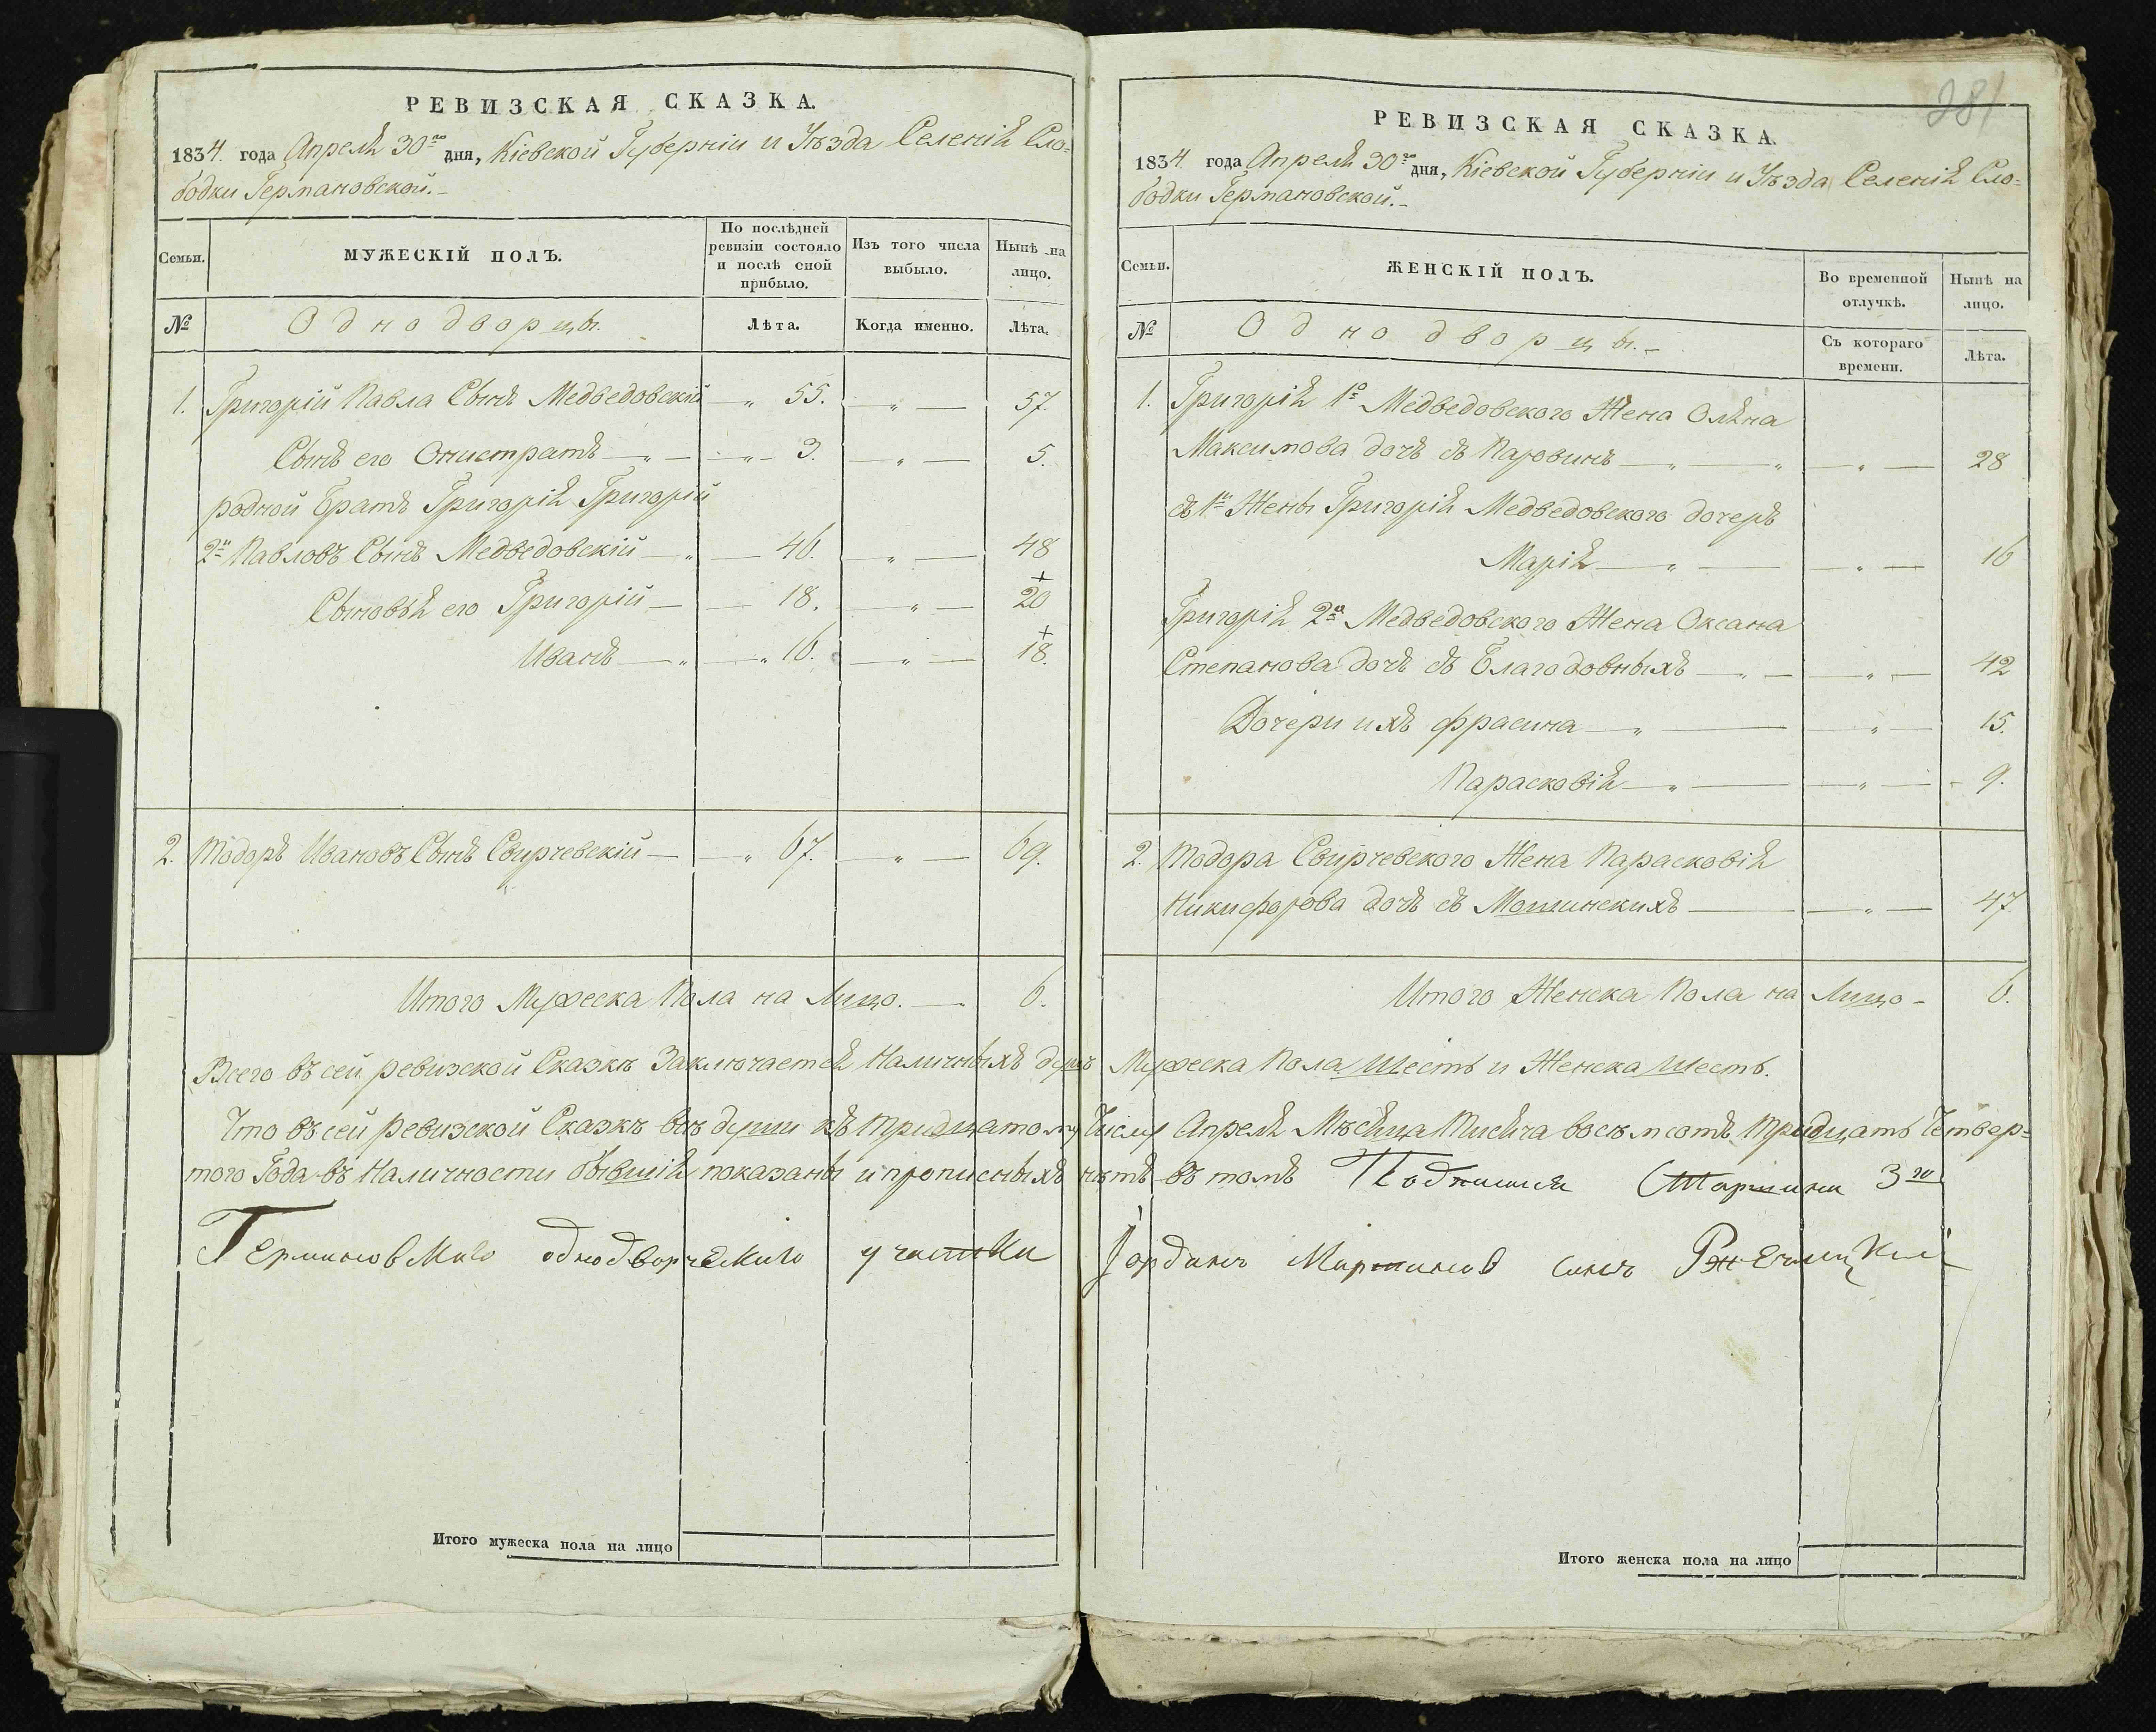 РЕВИЗСКАЯ СКАЗКА.
1834. года Апреля 30го дня, Кіевской Губерніи и Уѣзда Селенія Сло-
бодки Германовской.-
Семьи.
МУЖЕСКІЙ ПОЛЪ.
По послѣдней ревизіи состояло и послѣ оной прибыло.
Изъ того числа выбыло.
Нынѣ на лицо.
№
Однодворцы.
Лѣта.
Когда именно.
Лѣта.
1. Григорій Павла Сынъ Медведовскій — „ 55. — „ — 57.
Сынъ его Онистратъ — „ — „ — 3. — „ — 5.
родной Братъ Григорія Григорій
2й Павловъ Сынъ Медведовскій — „ — 46. — „ — 48
Сыновья его Григорій — — 18. — „ — + 20
Иванъ — „ — „ 16. — „ — + 18.
2. Тодоръ Ивановъ Сынъ Свирчевскій — „ 67. — „ — 69.
Итого Мужеска Пола на Лицо. — 6.
РЕВИЗСКАЯ СКАЗКА.
281
1834 года Апреля 30го дня, Кіевской Губерніи и Уѣзда Селенія Сло-
бодки Германовской.-
Семьи.
ЖЕНСКІЙ ПОЛЪ.
Во временной отлучкѣ.
Нынѣ на лицо.
№
Однодворцы.-
Съ котораго времени.
Лѣта.
1. Григорія 1о Медведовского Жена Оляна
Максимова дочъ съ Паровинъ — „ — „ — „ — 28
съ 1й Жены Григорія Медведовского дочеръ
Марія — „ — — „ — 16
Григорія 2а Медведовского Жена Оксана
Степанова дочъ съ Благодовныхъ — „ — — „ — 42
Дочери ихъ Фрасина — „ — „ — 15.
Парасковія — „ — — „ — - 9.
2. Тодора Свирчевского Жена Парасковія
Никифорова дочъ съ Мошинскихъ — — „ — 47
Итого Женска Пола на Лицо - 6.
Всего въ сей ревизской Сказкѣ Заключается Наличныхъ душъ Мужеска Пола Шесть и Женска Шесть.
Что въ сей ревизской Сказкѣ всѣ души къ тридцатому Числу Апреля Мѣсяца Тисяча восѣмсотъ тридцать Четвер-
того Года въ Наличности бывшія показаны и прописныхъ нѣтъ въ томъ Подписался Старшина 3го
Германовского однодворческого участка Іординъ Мартинов синъ
Итого мужеска пола на лицо
Итого женска пола на лицо